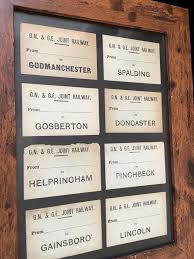 G.N. & G.E. JOINT RAILWAY.
From
TO
GODMANCHESTER
G.N. & G.E. JOINT RAILWAY.
From
TO
SPALDING
G.N. & G.E. JOINT RAILWAY.
From
TO
GOSBERTON
G.N. & G.E. JOINT RAILWAY.
From
TO
DONCASTER
G.N. & G.E. JOINT RAILWAY.
From
TO
HELPRINGHAM
G.N. & G.E. JOINT RAILWAY.
From
TO
PINCHBECK
G.N. & G.E. JOINT RAILWAY.
From
TO
GAINSBORO'
G.N. & G.E. JOINT RAILWAY.
From
TO
LINCOLN